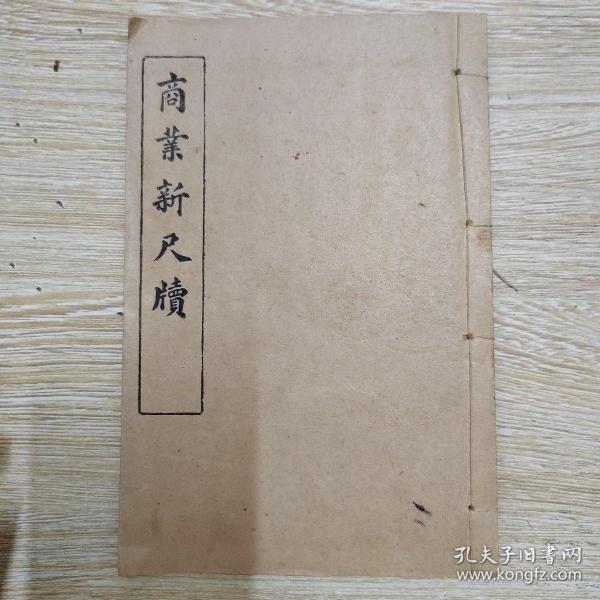 商業新尺牘
孔夫子旧書网
www.kongfz.com